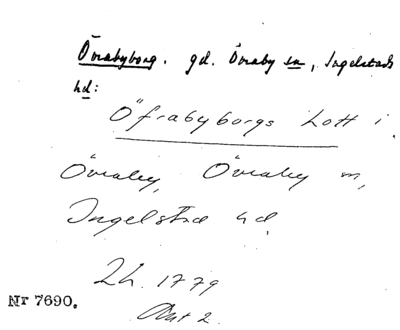 Örabyborg. gd. Öraby sn, Ingelstads
hd:
Öfrabyborgs Lott i
Öraby, Öraby sn,
Ingelstad hd
Lh. 1779
Akt 2
Nr 7690.